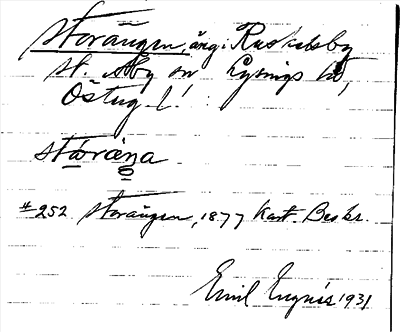 Storängen, äng i Ruskelsby
St. Åby sn Lysings hd,
Östug. l.
stóräŋa
#252 Storängen, 1877 Kart. Beskr.
Emil 1931